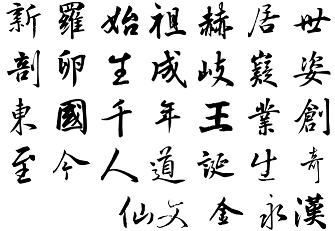 新羅始祖赫居世
剖卵生成岐嶷姿
東國千年王業創
至今人道誕生奇
仙文 金永漢